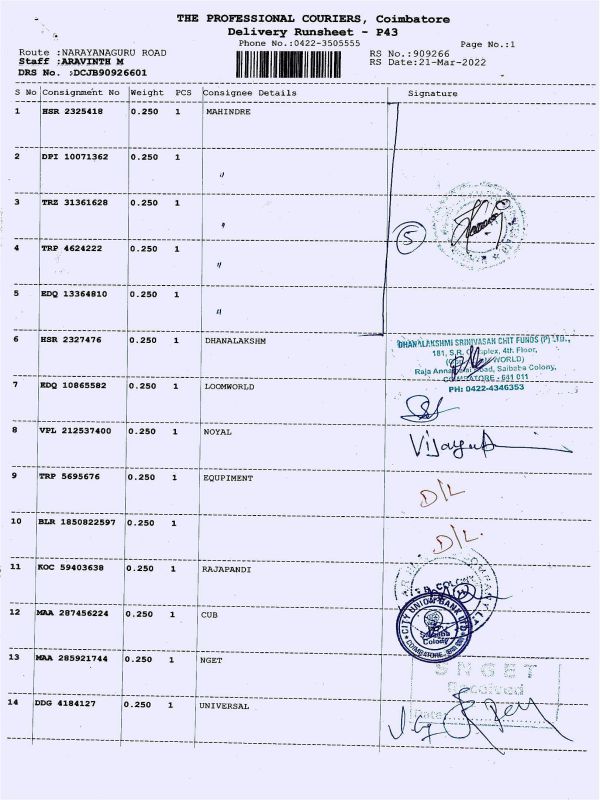 THE PROFESSIONAL COURIERS, Coimbatore
Delivery Runsheet - P43
Phone No.:0422-3505555
Page No.:1
Route :NARAYANAGURU ROAD
RS No.:909266
Staff :ARAVINTH M
RS Date:21-Mar-2022
DRS No. :DCJB90926601
S No Consignment No Weight PCS Consignee Details Signature
1 HSR 2325418 0.250 1 MAHINDRE
2 DPI 10071362 0.250 1 "
3 TRZ 31361628 0.250 1 "
5
4 TRP 4624222 0.250 1 "
5 EDQ 13364810 0.250 1 "
6 HSR 2327476 0.250 1 DHANALAKSHM
DHANALAKSHMI SRINIVASAN CHIT FUNDS (P) LTD.,
181, S.R. Complex, 4th Floor,
WORLD)
Raja Annamalai Road, Saibaba Colony,
COIMBATORE - 641 011
PH: 0422-4346353
7 EDQ 10865582 0.250 1 LOOMWORLD
8 VPL 212537400 0.250 1 NOYAL
9 TRP 5695676 0.250 1 EQUPIMENT
D/L
10 BLR 1850822597 0.250 1
D/L
11 KOC 59403638 0.250 1 RAJAPANDI
12 MAA 287456224 0.250 1 CUB
CITY UNION BANK LTD
Saibaba
Colony
COIMBATORE
13 MAA 285921744 0.250 1 NGET
SNGET
Received
Date
14 DDG 4184127 0.250 1 UNIVERSAL